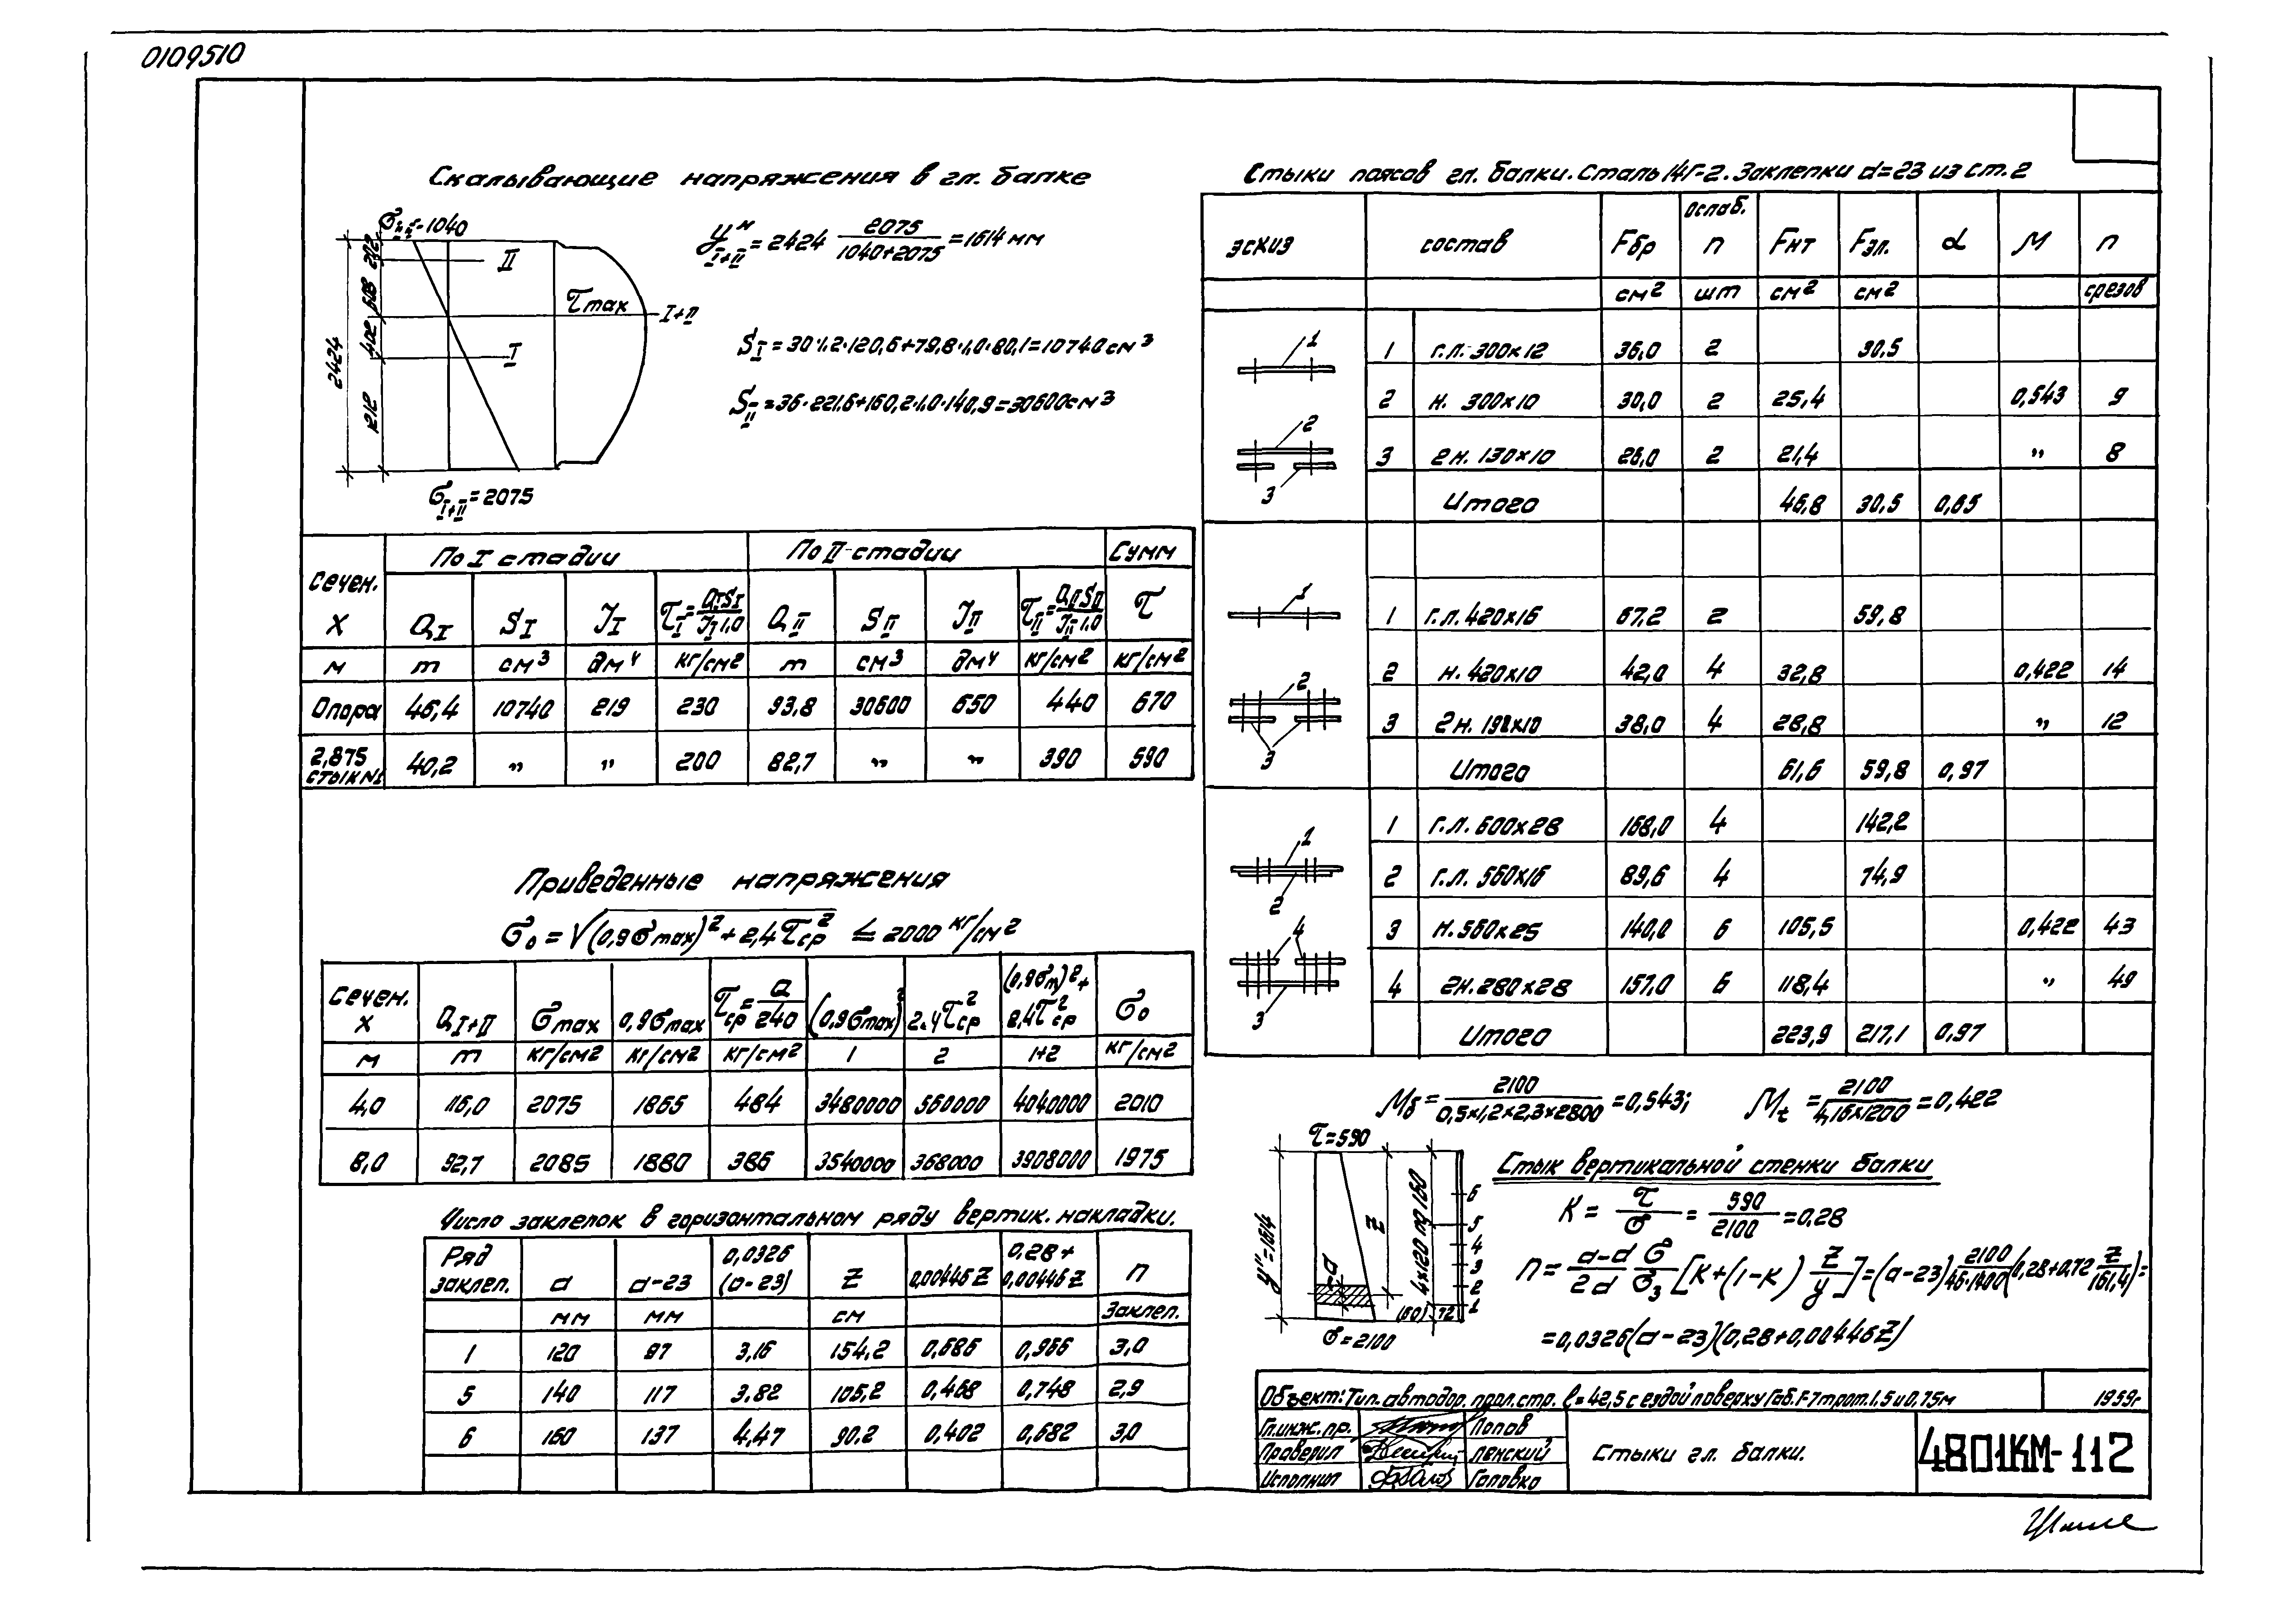 0109510
Скалывающие напряжения в гл. балке
2424
212
608
402
1212
II
I
τmax
I+II
σI+II=2075
yнI+II = 2424 2075/(1040+2075) = 1614 мм
SI = 30·1.2·120,6+79,8·1,0·80,1=10740 см³
SII = 36·221,6+160,2·1.0·140,9=30600см³
Сечен. X | По I стадии | По II стадии | Сумм
QI | SI | JI | τI = QI SI / JI 1.0 | QII | SII | JII | τII = QII SII / JII 1.0 | τ
м | т | см³ | дм⁴ | кг/см² | т | см³ | дм⁴ | кг/см² | кг/см²
Опора | 46,4 | 10740 | 219 | 230 | 93.8 | 30600 | 650 | 440 | 670
2,875 стык N1 | 40,2 | " | " | 200 | 82,7 | " | " | 390 | 590
Приведенные напряжения
σ₀ = √(0,9σmax)² + 2,4τср² ≤ 2000 кг/см²
Сечен. X | QI+II | σmax | 0,9σmax | τср = Q/240 | (0,9σmax)² | 2.4τ²ср | (0,9σm)²+2,4τ²ср | σ₀
м | т | кг/см² | кг/см² | кг/см² | 1 | 2 | 1+2 | кг/см²
4,0 | 116,0 | 2075 | 1865 | 484 | 3480000 | 560000 | 4040000 | 2010
8,0 | 92,7 | 2085 | 1880 | 386 | 3540000 | 368000 | 3908000 | 1975
Число заклепок в горизонтальном ряду вертик. накладки.
Ряд заклеп. | a | a-23 | 0,0326 (a-23) | Z | 0,00446Z | 0.28+0,00446Z | n
мм | мм | см | Заклеп.
1 | 120 | 97 | 3,16 | 154,2 | 0,686 | 0,966 | 3,0
5 | 140 | 117 | 3.82 | 105,2 | 0,468 | 0,748 | 2,9
6 | 160 | 137 | 4,47 | 90.2 | 0,402 | 0,682 | 3,0
Стыки поясов гл. балки. Сталь 14Г-2. Заклепки d=23 из ст. 2
эскиз | состав | Fбр | ослаб. n | Fнт | Fэл. | α | M | n
см² | шт | см² | см² | срезов
1 | г.л. 300×12 | 36,0 | 2 | 30,5
2 | н. 300×10 | 30,0 | 2 | 25,4 | 0,543 | 9
3 | 2н. 130×10 | 26,0 | 2 | 21,4 | " | 8
Итого | 46,8 | 30,5 | 0,65
1 | г.л. 420×16 | 67,2 | 2 | 59,8
2 | н. 420×10 | 42,0 | 4 | 32,8 | 0,422 | 14
3 | 2н. 192×10 | 38,0 | 4 | 28,8 | " | 12
Итого | 61,6 | 59,8 | 0,97
1 | г.л. 600×28 | 168,0 | 4 | 142,2
2 | г.л. 560×16 | 89,6 | 4 | 74,9
3 | н. 560×25 | 140,0 | 6 | 105,5 | 0,422 | 43
4 | 2н. 280×28 | 157,0 | 6 | 118,4 | " | 49
Итого | 223,9 | 217,1 | 0,97
Mδ = 2100/(0,5×1,2×2,3×2800) = 0,543; Mt = 2100/(4,16×1200) = 0,422
τ=590
y"=1614
a
Z
4×120
160
(60)
72
6
5
4
3
2
1
σ=2100
Стык вертикальной стенки балки
K = τ/σ = 590/2100 = 0,28
n = (a-d)/2d σ/σ₃ [K+(1-K) Z/y] = (a-23) 2100/(46·1400) (0,28+0,72 Z/161,4) =
=0,0326(a-23)(0,28+0,00446Z)
Объект: Тип. автодор. прол. стр. ℓ=42,5 с ездой поверху Габ. Г-7 трот. 1.5 и 0.75м | 1959г
Гл. инж. пр. | Попов
Проверил | Ленский
Исполнил | Головко
Стыки гл. балки.
4801КМ-112